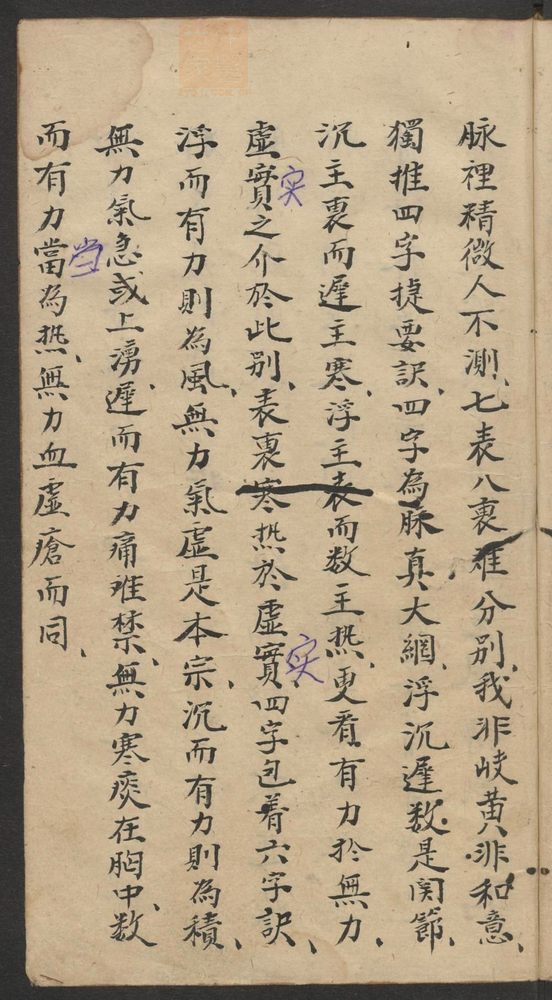 脉裡精微人不測、七表八裏难分别、我非岐黄非和意、
獨推四字㨗要訣、四字為脉真大綱、浮沉遲数是関節、
沉主裏而遲主寒、浮主表而数主热、更看有力於無力、
虛實之介於此别、表裏寒热於虛實四字包着六字訣、
实
实
浮而有力則為風、無力氣虛是本宗、沉而有力則為積、
無力氣急或上湧、遲而有力痛难禁、無力寒痰在胸中、数
当
而有力當為热、無力血虛瘡而同、